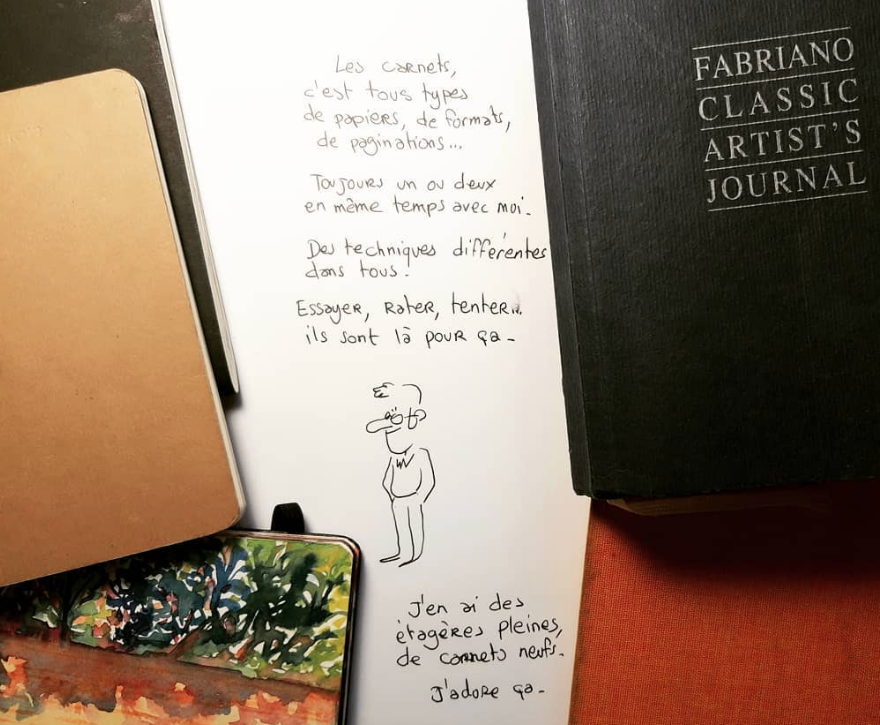 Les carnets,
c'est tous types
de papiers, de formats,
de paginations...
Toujours un ou deux
en même temps avec moi.
Des techniques différentes
dans tous.
Essayer, rater, tenter...
ils sont là pour ça -
J'en ai des
étagères pleines,
de carnets neufs.
J'adore ça -
FABRIANO
CLASSIC
ARTIST'S
JOURNAL